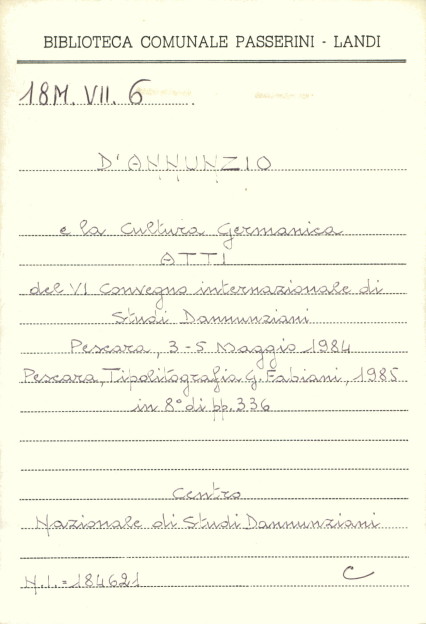 BIBLIOTECA COMUNALE PASSERINI - LANDI
18M. VII. 6
D'ANNUNZIO
e la Cultura Germanica
ATTI
del VI Convegno internazionale di
Studi Dannunziani
Pescara, 3-5 Maggio 1984
Pescara, Tipolitografia G. Fabiani, 1985
in 8° di pp. 336
Centro
Nazionale di Studi Dannunziani
N.I. = 184621
C